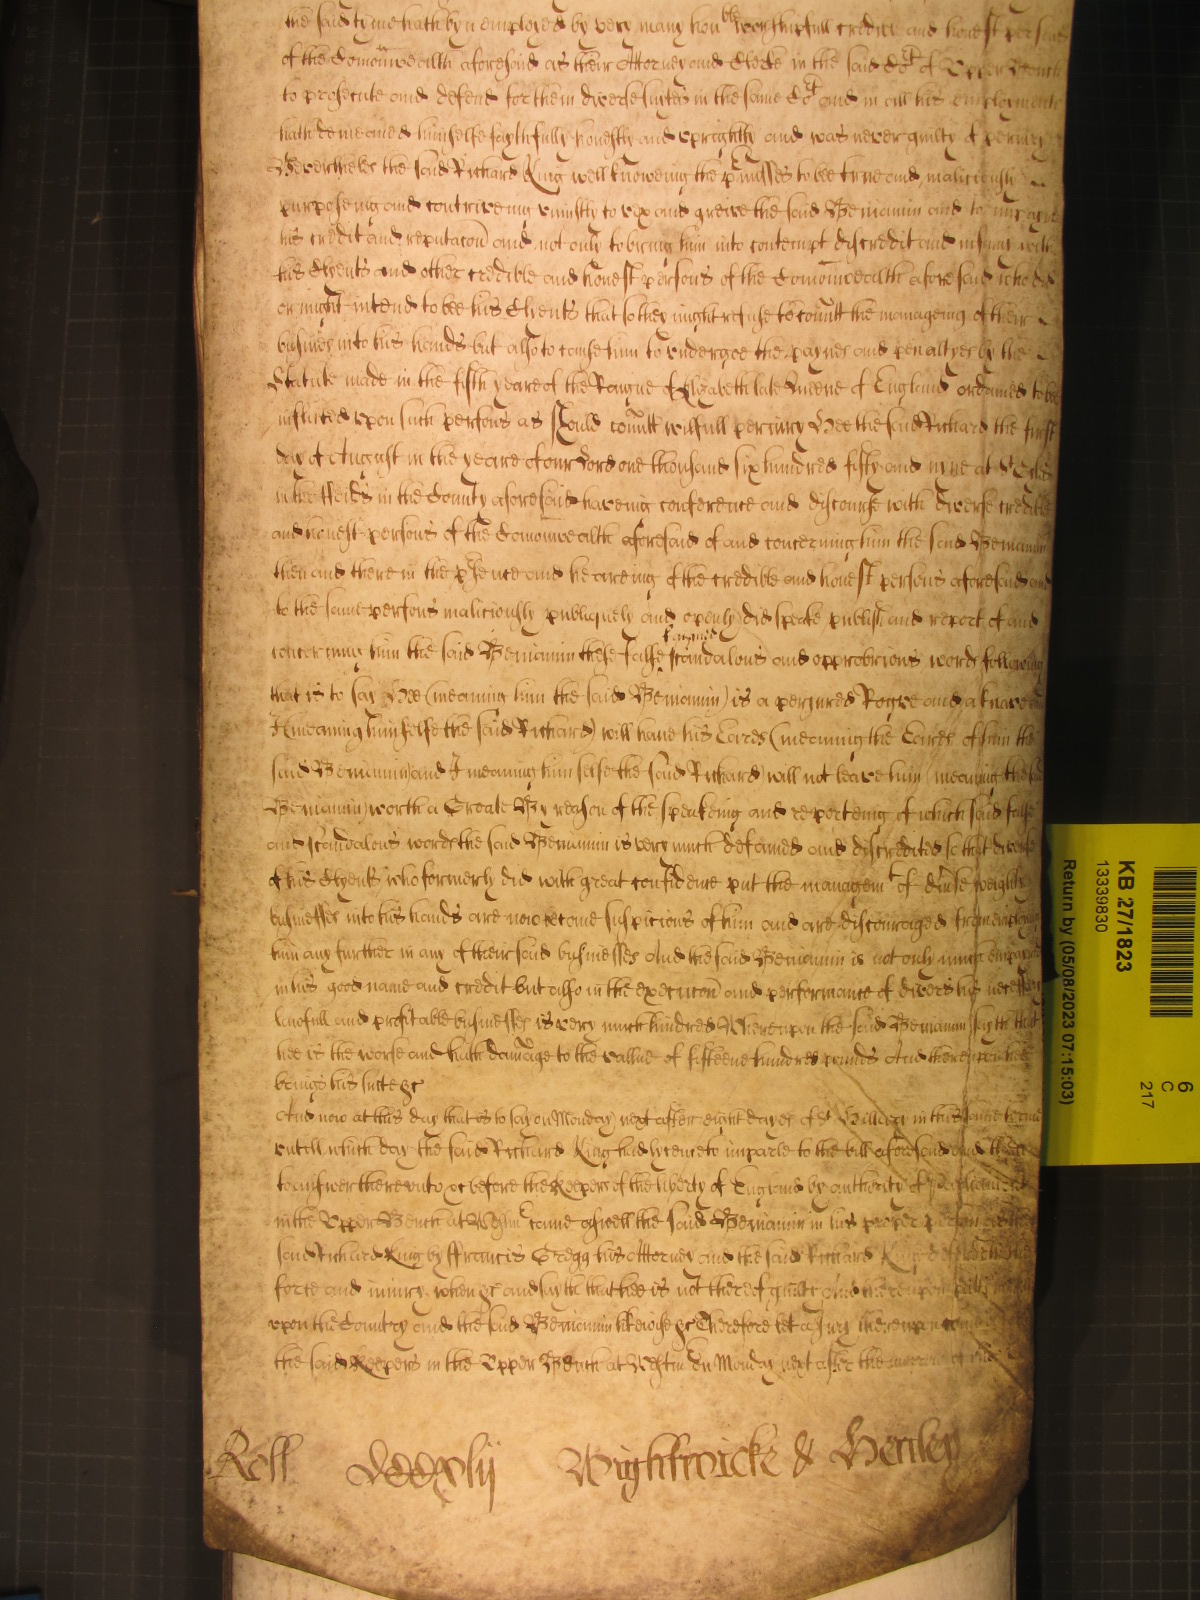 the said tyme hath byn employed by very many hon^ble worshipfull credible and honest persons
of the Comonwealth aforesaid as their Attorney and Clerke in the said Co^rt of Upper Bench
to prosecute and defend for them diverse suites in the same Co^rt and in all his employments
hath demeaned himselfe faythfully honestly and uprightly and was never guilty of periury
Neverthelesse the said Richard King well knoweing the p^rmisses to bee true and maliciously
purposeing and contriveing uniustly to vex and greive the said Beniamin and to impaire
his credit and reputacon and not only to bring him into contempt discredit and infamy with
his Clyents and other credible and honest persons of the Comonwealth aforesaid who did
or might intend to bee his Clyents that so they might refuse to comitt the manageing of their
busines into his hands but also to cause him to undergoe the paynes and penaltyes by the
Statute made in the fifth yeare of the Raigne of Elizabeth late Queene of England ordained to be
inflicted upon such persons as should comitt wilfull periury Hee the said Richard the first
day of August in the yeare of our Lord one thousand six hundred fifty and nyne at
in the County aforesaid haveing conference and discourse with diverse credible
and honest persons of the Comonwealth aforesaid of and concerning him the said Beniamin
then and there in the p^rsence and heareing of the credible and honest persons aforesaid and
to the same persons maliciously publiquely and openly did speake publish and report of and
concerning him the said Beniamin these false fayned scandalous and opprobrious words following
that is to say Hee (meaning him the said Beniamin) is a periured Rogue and a knave and
I (meaning himselfe the said Richard) will have his Eares (meaning the Eares of him the
said Beniamin) and I meaning himselfe the said Richard) will not leave him (meaning the said
Beniamin) worth a Groate By reason of the speakeing and reporteing of which said false
and scandalous words the said Beniamin is very much defamed and discredited so that diverse
of his Clyents who formerly did with great confidence put the managem^t of diverse weighty
businesses into his hands are now become suspicious of him and are discouraged from employing
him any further in any of their said businesses And the said Beniamin is not only much empaired
in his good name and credit but also in the execucon and performance of divers his necessary
lawfull and profitable businesses is very much hindred Whereupon the said Beniamin sayth that
hee is the worse and hath damage to the vallue of fifteene hundred pounds And thereupon hee
brings his suite &c
And now at this day that is to say on Monday next after eight dayes of S^t Hillary in this same terme
untill which day the said Richard King had lycence to imparle to the bill aforesaid and then
to answer thereunto &c before the Keepers of the liberty of England by authority of Parliament
in the Upper Bench at Westm^r came aswell the said Beniamin in his proper person as the
said Richard King by Francis Gregg his Attorney and the said Richard King defends the
force and iniury when &c and sayth that hee is not thereof guilty And thereupon puts himselfe
upon the Country and the said Beniamin likewise &c Therefore let a Jury thereupon come
the said Keepers in the Upper Bench at Westm on Monday next after the morrow of the
Roll dccxlij Wightwicke & Henley
KB 27/1823
13339830
Return by (05/08/2023 07:15:03)
6
C
217